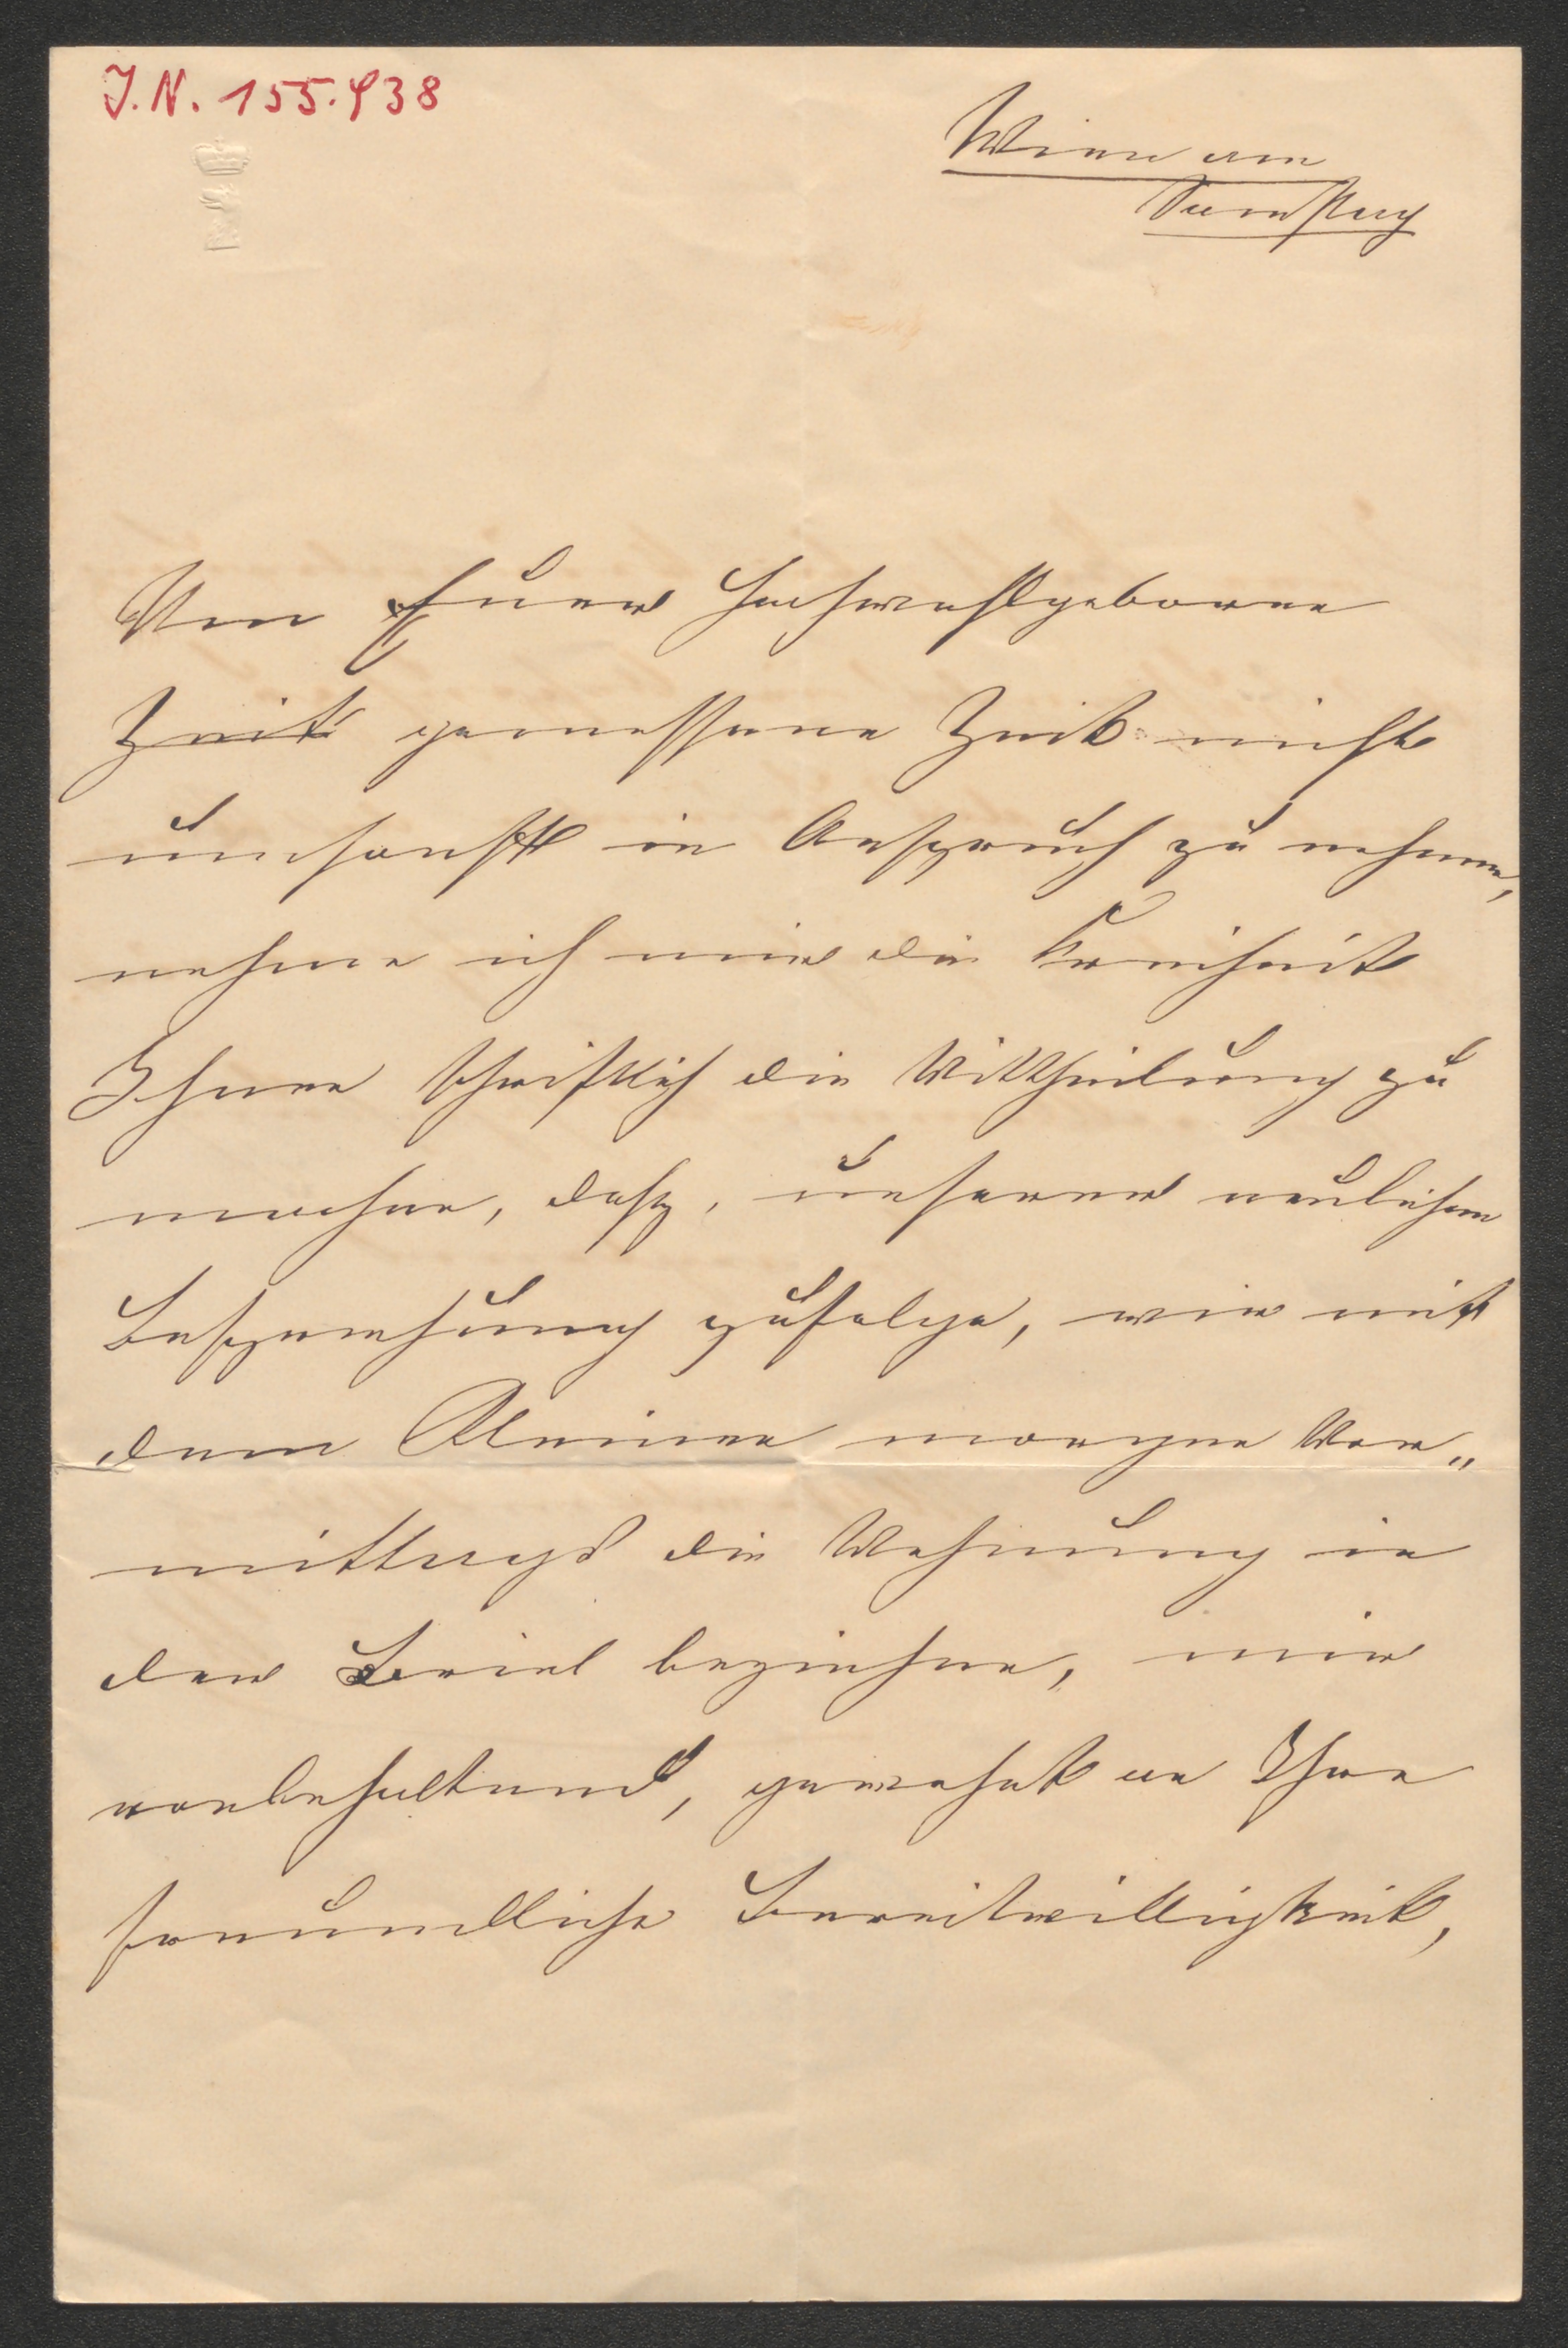 J.N. 155.438
Wien am
Samstag
Um Euer Hochwohlgeboren
Zeit gemessene Zeit nicht
umsonst in Anspruch zu nehmen,
nehme ich mir die Freiheit
Ihnen schriftlich die Mittheilung zu
machen, daß, unserer neulichen
Besprechung zufolge, wir mit
dem Kleinen morgen Vor„
mittags die Wohnung in
der Briel beziehen, mir
vorbehaltend, gewohnt an Ihre
freundliche Bereitwilligkeit,